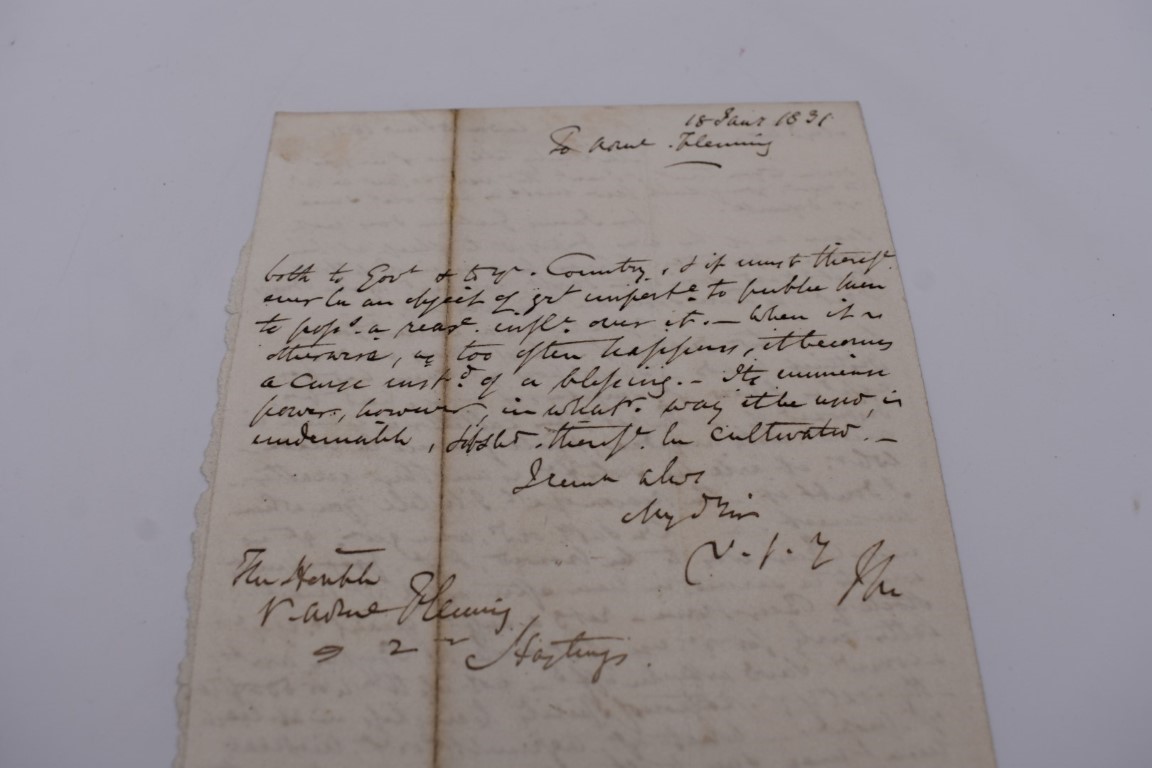 18 Jany 1831
To Adml Fleming
both to Govt & to ye. Country, & it must therefe.
ever be an object of grt importce. to public men
to posss. a rease. influe. over it. — When it is
otherwise, as too often happens, it becomes
a curse instd. of a blessing. — Its immense
power, however, in whatr. way it be used, is
undeniable, & shd. therefe. be cultivated. —
I remn always
My dr Sir
V. f. y
The Honble
V. Adml Fleming
9 2
Hastings.